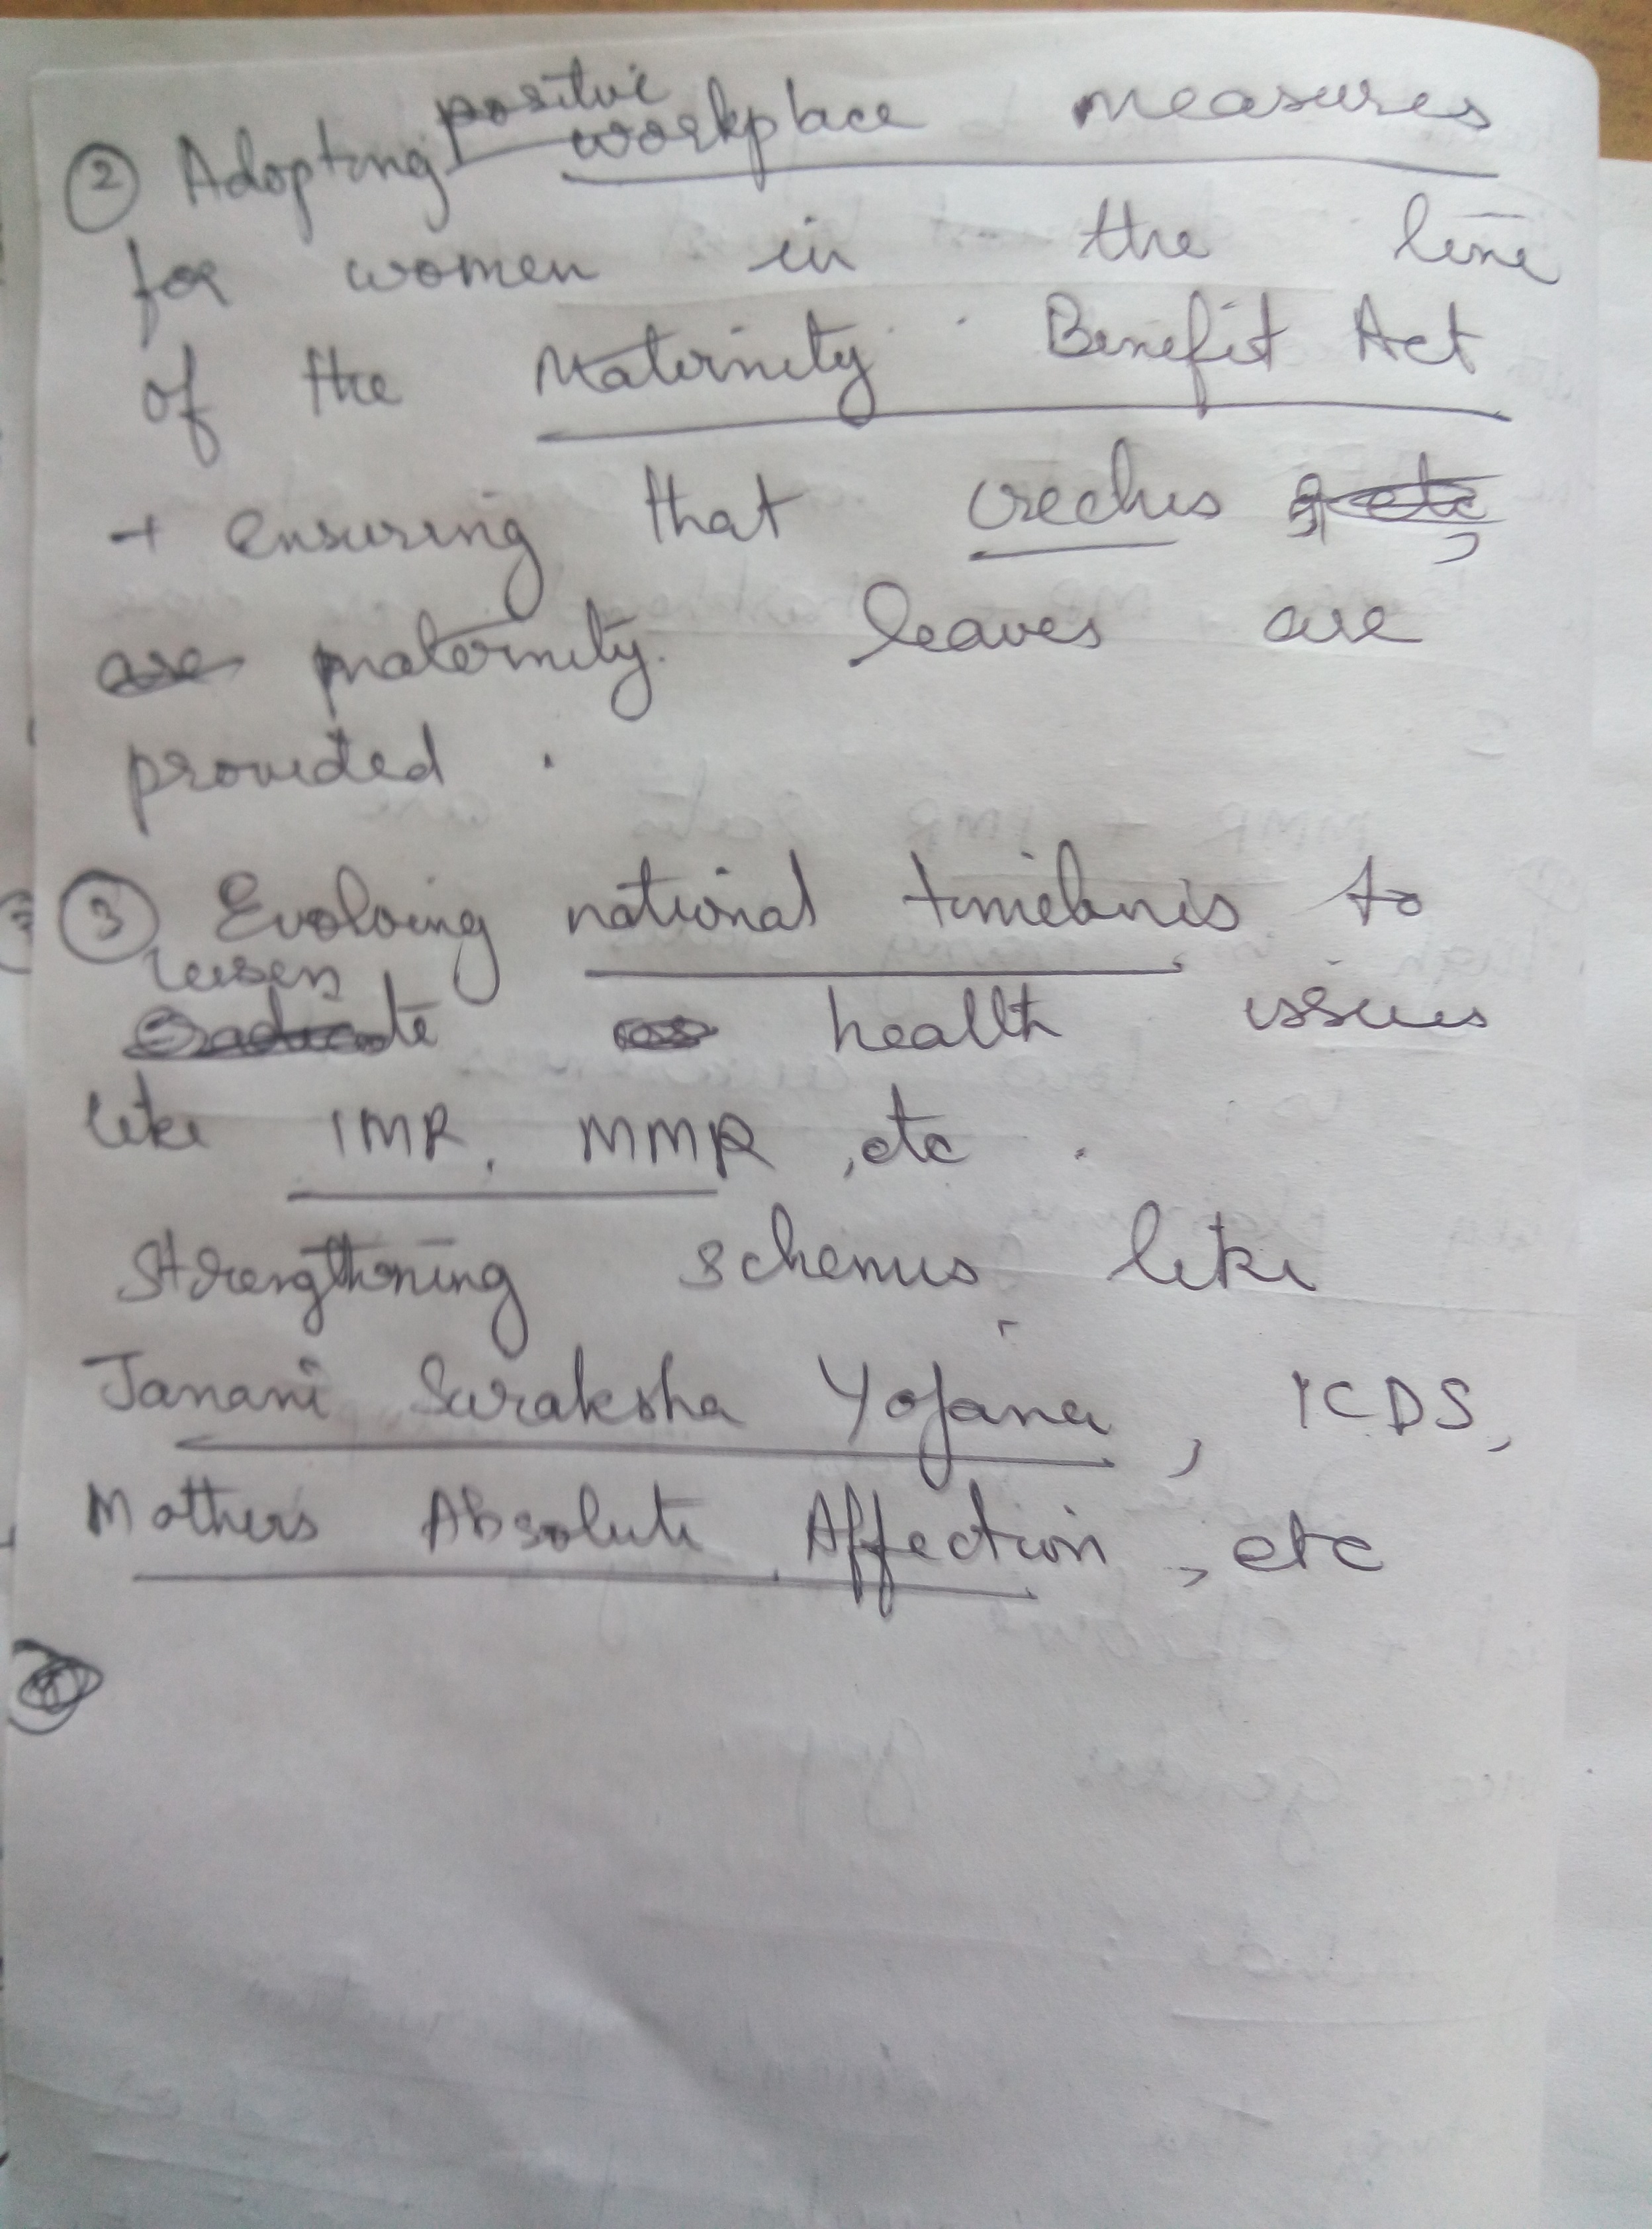 ② Adopting positive workplace measures
for women in the line
of the Maternity Benefit Act
+ ensuring that creches ,
maternity leaves are
provided .
③ Evolving national timelines to
lessen
health issues
like IMR, MMR ,etc .
Strengthening schemes like
Janani Suraksha Yojana , ICDS,
Mothers Absolute Affection , etc